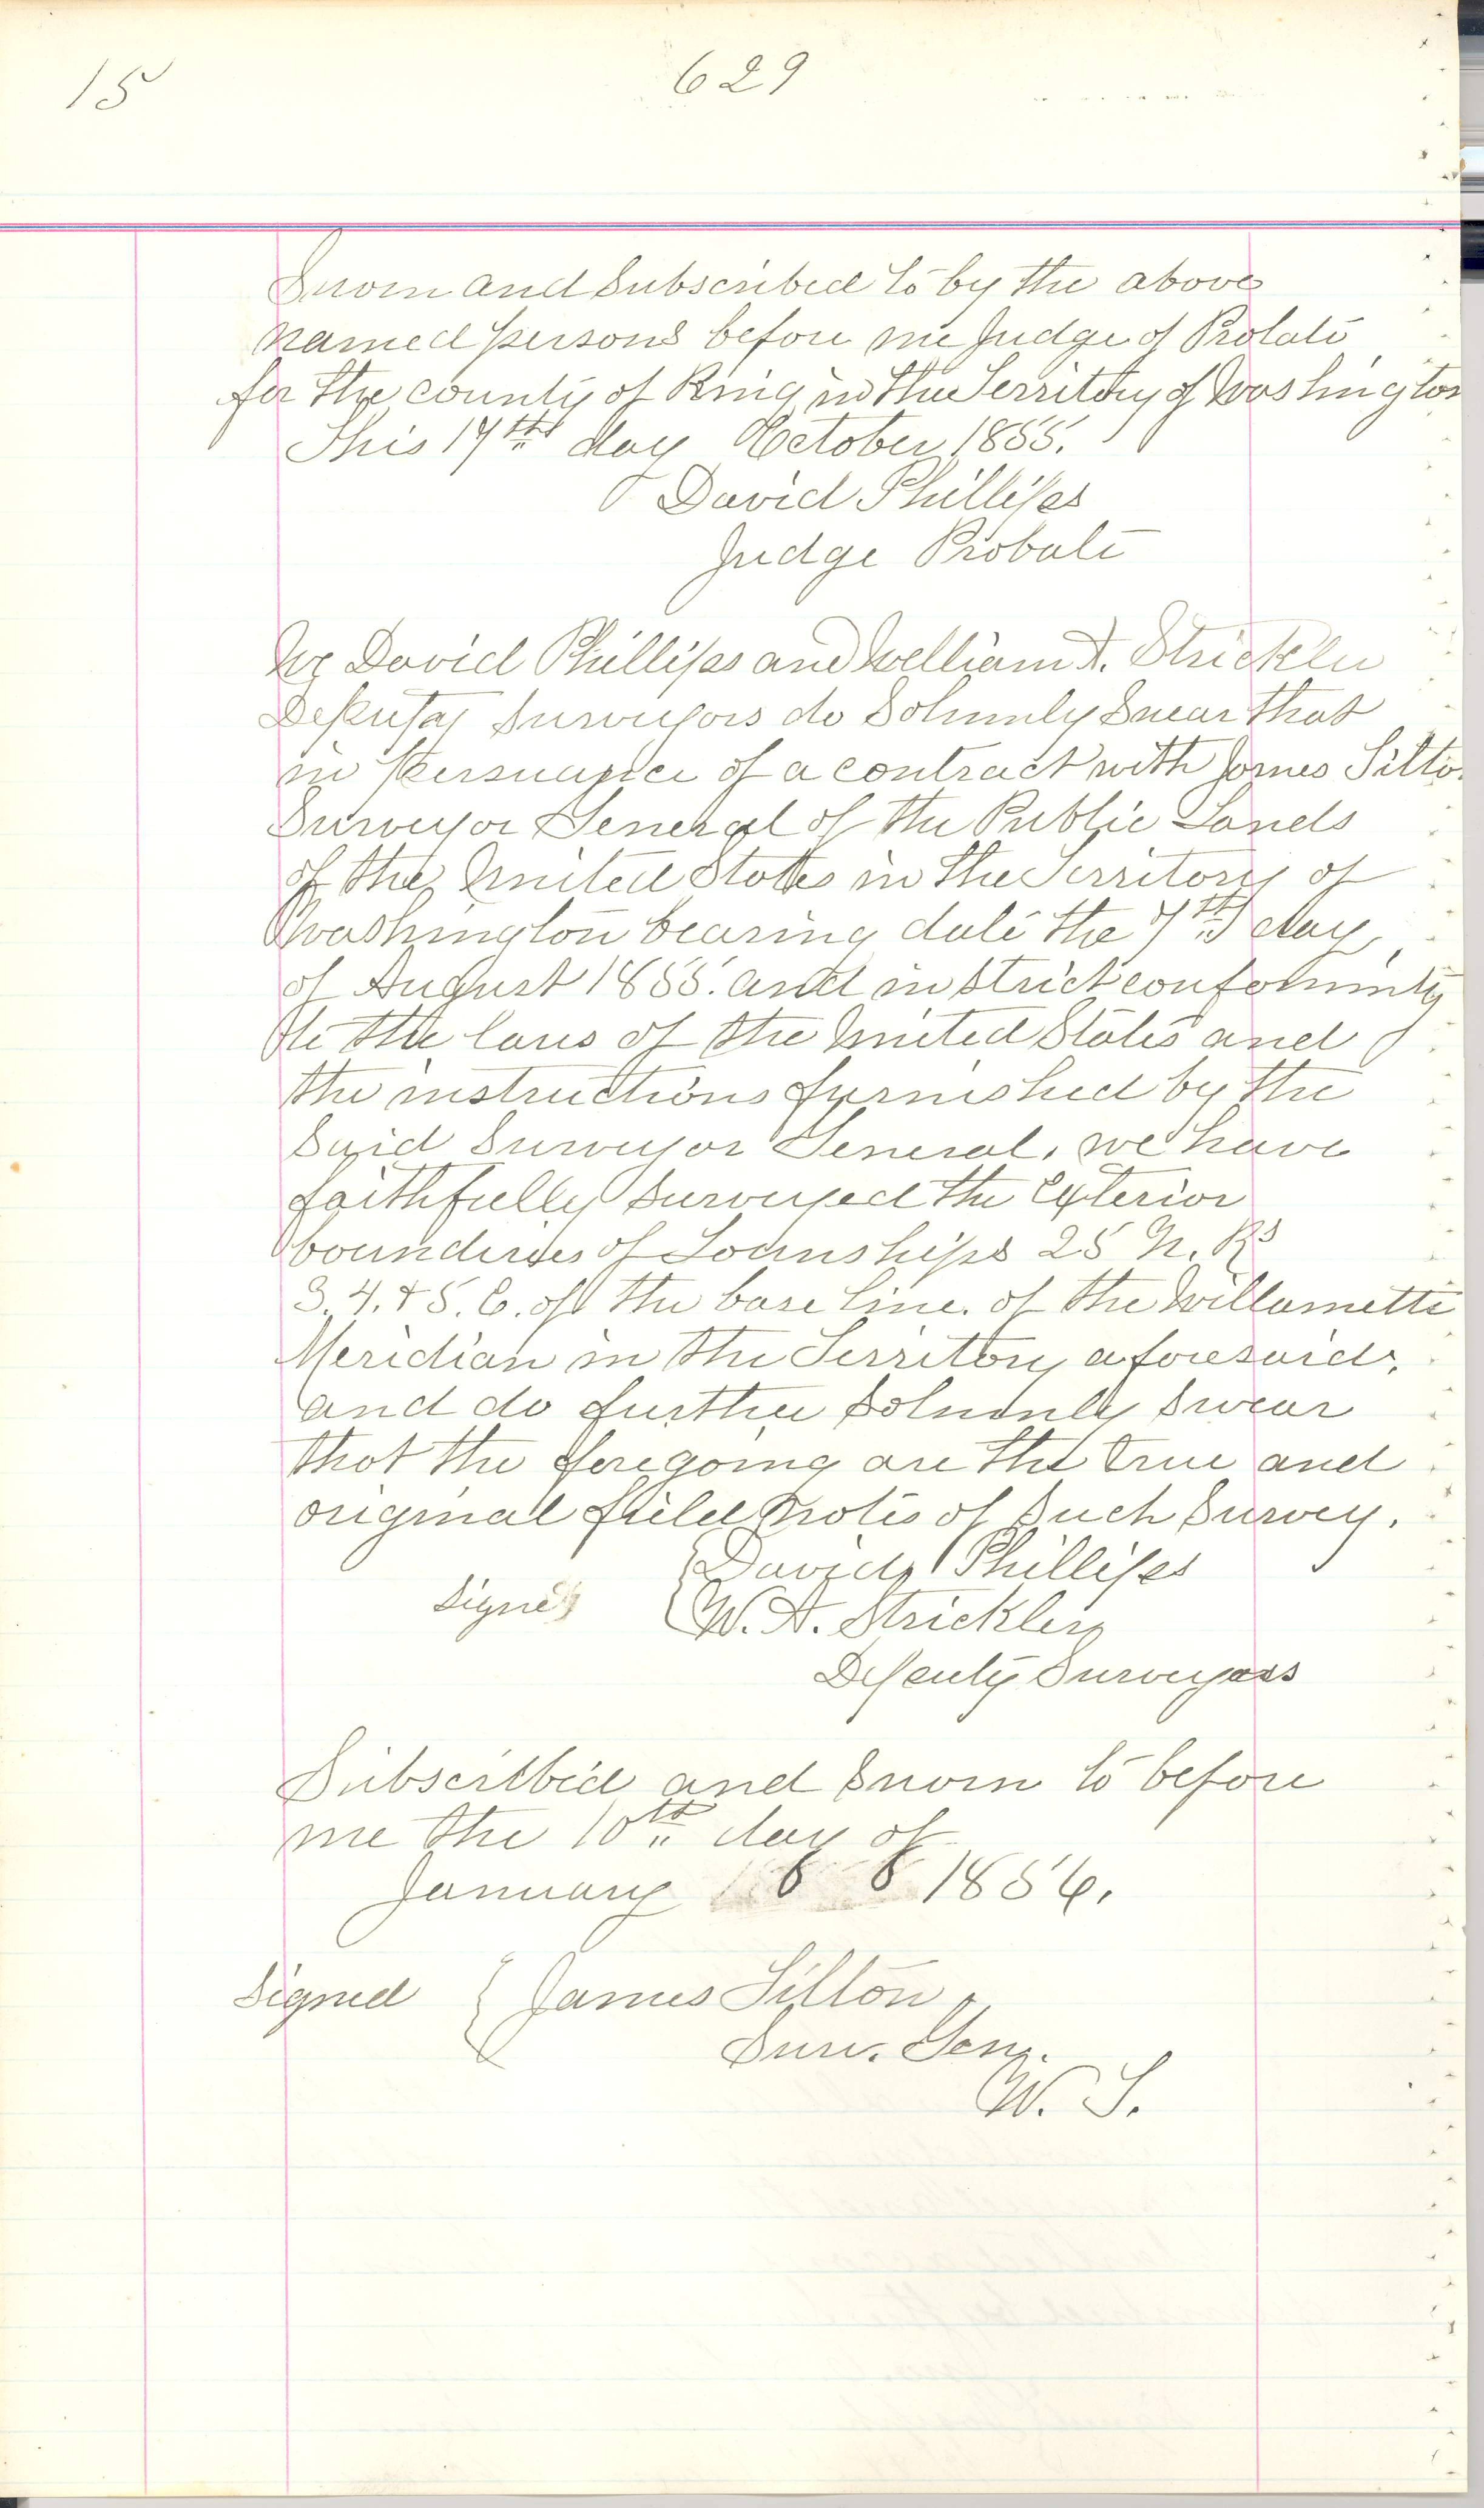 15
629
Sworn and Subscribed to by the above
named persons before me Judge of Probate
for the county of King in the Territory of Washington
This 17th day October 1855.
David Phillips
Judge Probate
We David Phillips and William A. Strickler
Deputy Surveyors do Solemnly Swear that
in persuance of a contract with James Tilto
Surveyor General of the Public Lands
of the United States in the Territory of
Washington bearing date the 7th day
of August 1855. and in strict conformity
to the laws of the United States and
the instructions furnished by the
Said Surveyor General, we have
faithfully surveyed the Exterior
boundries of Townships 25 N. Rs
3. 4. & 5. E. of the base line. of the Willamette
Meridian in the Territory aforesaid,
and do further Solemnly Swear
that the foregoing are the true and
original field notes of Such Survey.
David Phillips
Signed
W. A. Strickler
Deputy Surveyors
Subscribed and Sworn to before
me the 10th day of
January 1856.
Signed { James Tilton
Surv. Gen.
W. T.